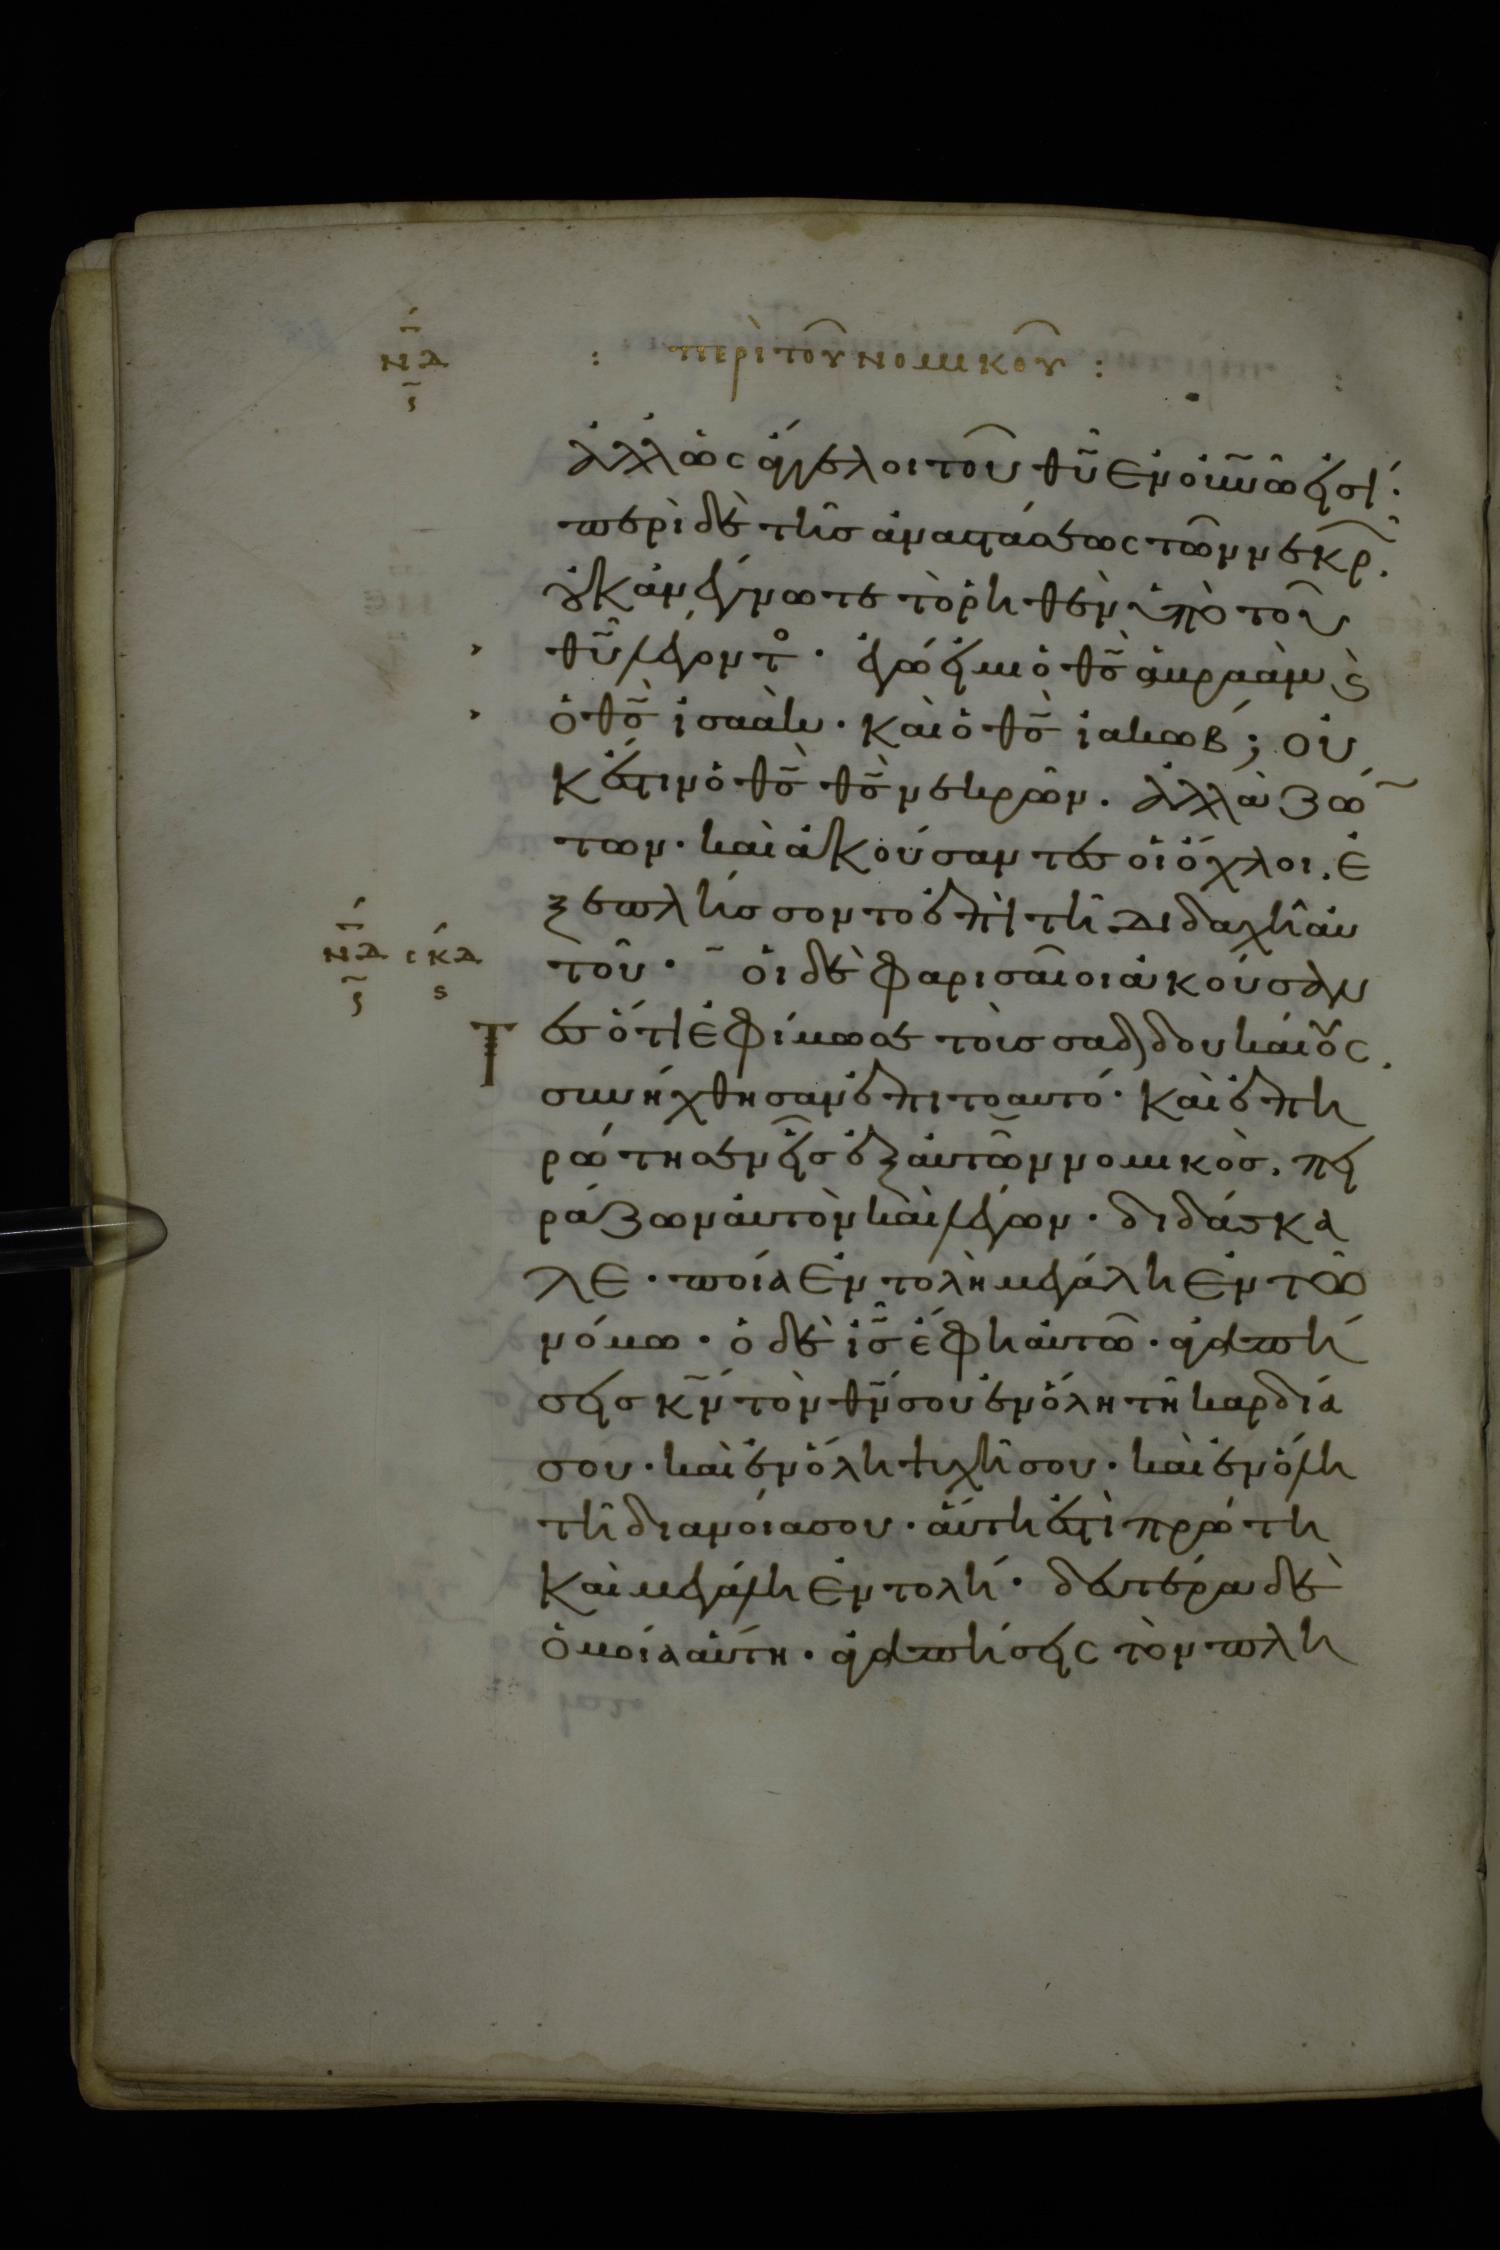 : περὶ τοῦ νομικοῦ :
ἀλλ' ὡς ἄγγελοι τοῦ θῦ ἐν οὐνῶ εἰσί·
περὶ δὲ τῆς ἀναστάσεως τῶν νεκρ̑.
οὐκ ἀνέγνωτε τὸ ῥηθὲν ὑπὸ τοῦ
θῦ λέγοντο· ἐγώ εἰμι ὁ θς ἀβραὰμ ϗ
ὁ θς ἰσαὰκ· καὶ ὁ θς ἰακώβ; οὐ
κ ἔστιν ὁ θς θς νεκρῶν. ἀλλὰ ζώ
των· καὶ ἀκούσαντες οἱ ὄχλοι. ἐ
ξεπλήσσοντο ἐπὶ τῆ διδαχῆ αὐ
τοῦ· οἱ δὲ φαρισαῖοι ἀκούσαν
τες ὅτι ἐφίμωσε τοὺς σαδδουκαίους.
συνήχθησαν ἐπιτοαυτό· καὶ ἐπη
ρώτησεν εἷς ἐξ αὐτῶν νομικὸς. πει
ράζων αὐτὸν καὶ λέγων· διδάσκα
λε· ποία ἐντολὴ μεγάλη ἐν τῶ
νόμω· ὁ δὲ ις ἔφη αὐτῶ· ἀγαπή
σεις κν τὸν θν σου ἐν ὅλη τῆ καρδία
σου· καὶ ἐν ὅλη ψυχῆ σου· καὶ ἐν ὅλη
τῆ διανοία σου· αὕτη ἐστὶ πρώτη
καὶ μεγάλη ἐντολή· δευτέρα δὲ
ὁμοία αὐτη· ἀγαπήσεις τὸν πλη